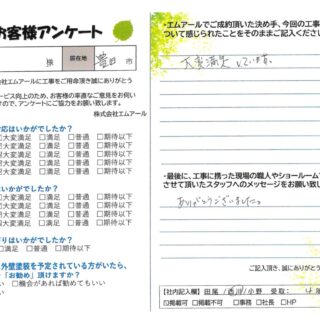 お客様アンケート
様
居住地
豊田
市
株式会社エムアールに工事をご用命頂き誠にありがとう
サービス向上のため、お客様の率直なご意見をお伺い
ますので、アンケートにご協力をお願い致します。
株式会社エムアール
対応はいかがでしたか?
☑大変満足 □満足 □普通 □期待以下
☑大変満足 □満足 □普通 □期待以下
☑大変満足 □満足 □普通 □期待以下
☑大変満足 □満足 □普通 □期待以下
はいかがでしたか?
☑大変満足 □満足 □普通 □期待以下
☑大変満足 □満足 □普通 □期待以下
☑大変満足 □満足 □普通 □期待以下
がりはいかがでしたか?
□満足 □普通 □期待以下
外壁塗装を予定されている方がいたら、
「お勧め」頂けますか?
い □機会があれば勧めてもいい
い
・エムアールでご成約頂いた決め手、今回の工事
ついて感じられたことをそのままご記入ください
大変満足しています。
・最後に、工事に携った現場の職人やショールーム
させて頂いたスタッフへのメッセージをお願い致
ありがとうございました。
ご記入頂き、誠にありがとう
【社内記入欄】担当:田尾/西川/小野 受取: 4年
☑掲載可 □掲載不可 □事務 □社長 □HP